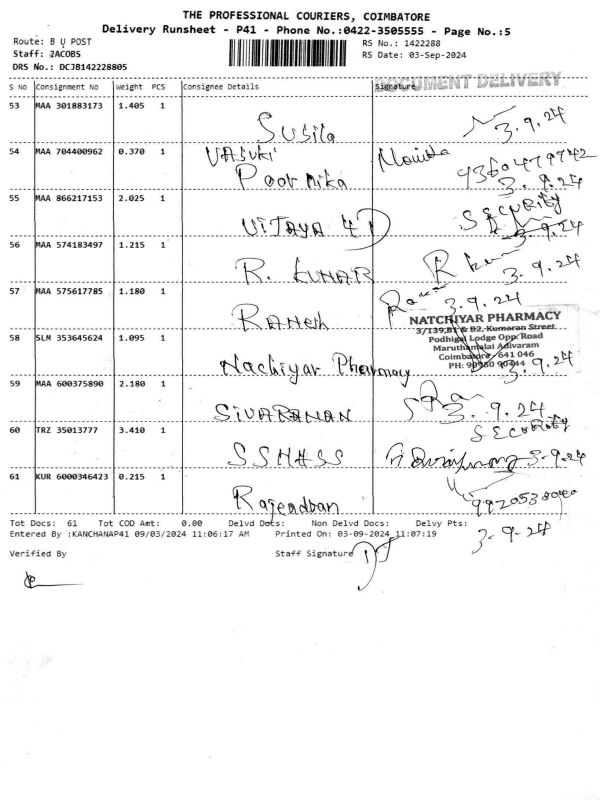 THE PROFESSIONAL COURIERS, COIMBATORE
Delivery Runsheet - P41 - Phone No.:0422-3505555 - Page No.:5
Route: B U POST
RS No.: 1422288
Staff: JACOBS
RS Date: 03-Sep-2024
DRS No.: DCJB142228805
DOCUMENT DELIVERY
S No Consignment No Weight PCS Consignee Details Signature
53 MAA 301883173 1.405 1
Susila 3.9.24
54 MAA 704400962 0.370 1 VASUKI
Poornika 3.9.24
55 MAA 866217153 2.025 1 SECURITY
VIJAYA 3.9.24
56 MAA 574183497 1.215 1
R. KUMAR R 3.9.24
57 MAA 575617785 1.180 1 3.9.24
RAMESH
NATCHIYAR PHARMACY
3/139,B1 & B2, Kumaran Street
Podhigai Lodge Opp. Road
Maruthamalai Adivaram
Coimbatore - 641 046
PH:
58 SLM 353645624 1.095 1
Nachiyar Pharmacy 3.9.24
59 MAA 600375890 2.180 1
SIVARAMAN 3.9.24
60 TRZ 35013777 3.410 1 SECURITY
SSHASS 3-9-24
61 KUR 6000346423 0.215 1
Rajendran
Tot Docs: 61 Tot COD Amt: 0.00 Delvd Docs: Non Delvd Docs: Delvy Pts:
3-9-24
Entered By :KANCHANAP41 09/03/2024 11:06:17 AM Printed On: 03-09-2024 11:07:19
Verified By Staff Signature